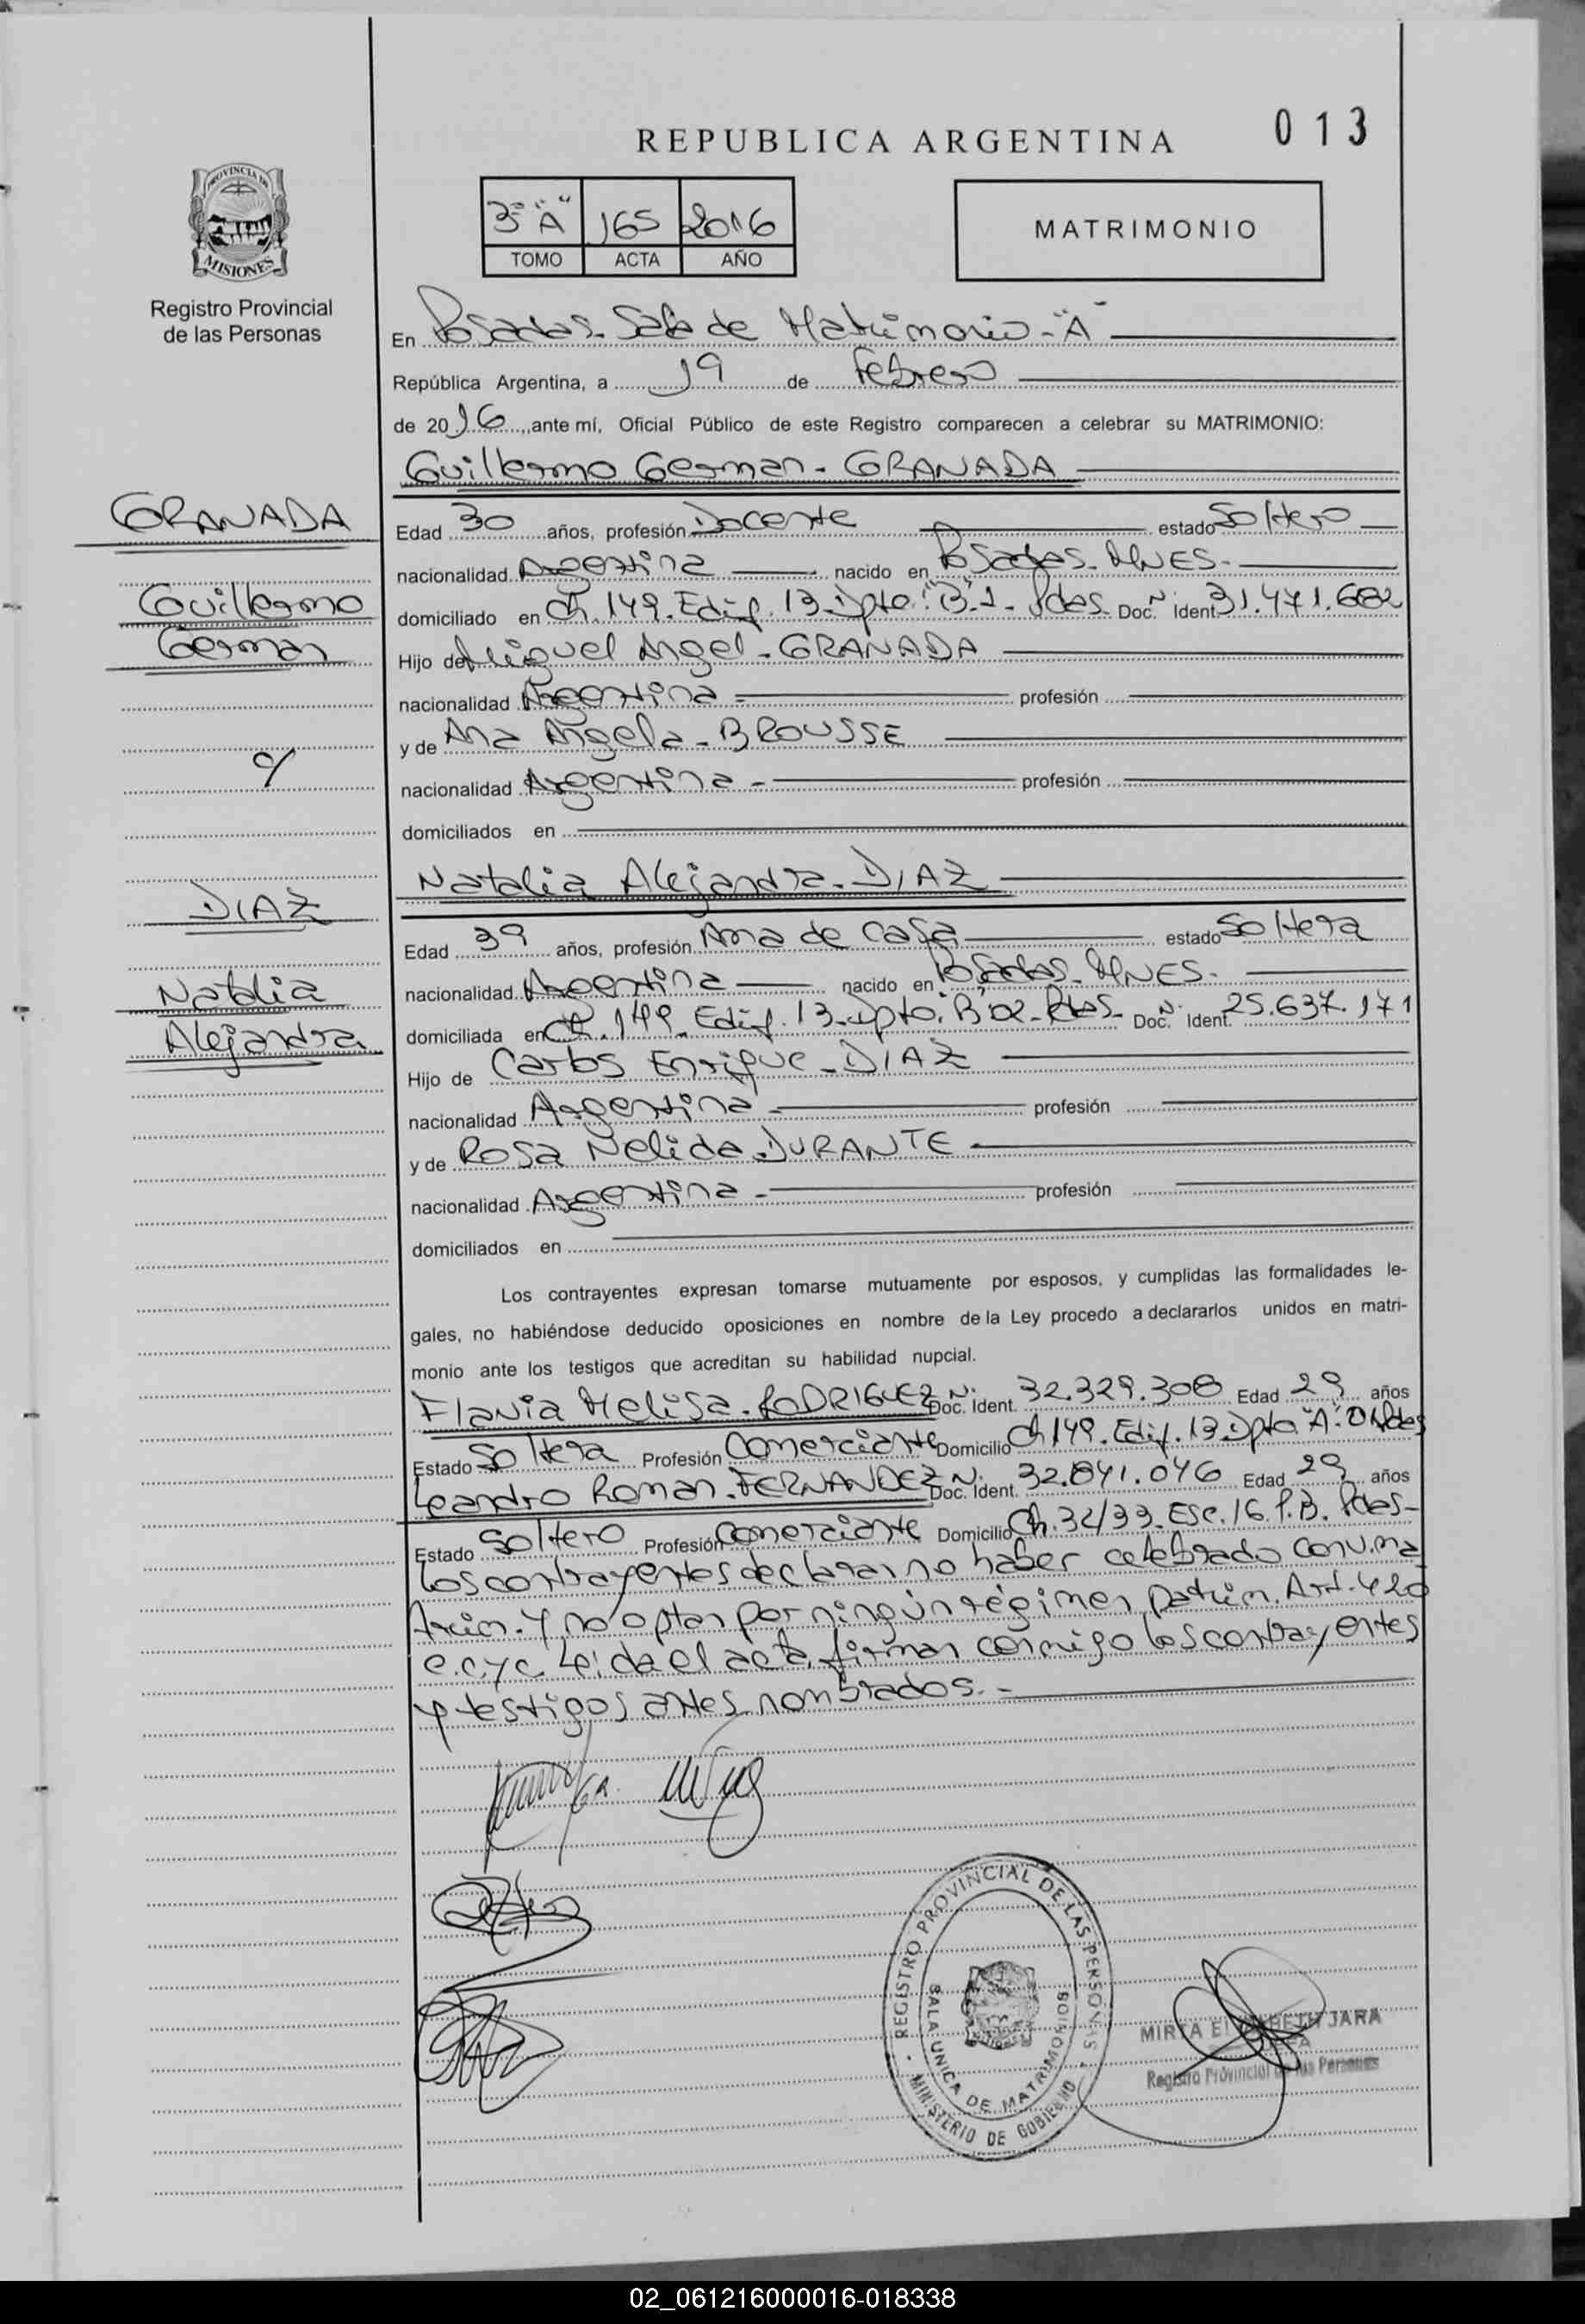 013
REPUBLICA ARGENTINA
PROVINCIA DE
MISIONES
Registro Provincial
de las Personas
3º "A" 165 2016
TOMO ACTA AÑO
MATRIMONIO
En Posadas - Sala de Matrimonio - "A"
República Argentina, a 19 de Febrero
de 2016, ante mí, Oficial Público de este Registro comparecen a celebrar su MATRIMONIO:
Guillermo German - GRANADA
GRANADA
Guillermo
German
c/
DIAZ
Natalia
Alejandra
Edad 30 años, profesión Docente estado Soltero
nacionalidad Argentina nacido en Posadas - MNES -
domiciliado en Ch. 149 - Edif. 13 - Dpto. "B" 1 - Pdas - Doc. N. Ident. 31.471.682
Hijo de Miguel Angel - GRANADA
nacionalidad Argentina - profesión
y de Ana Angela - BROUSSE
nacionalidad Argentina - profesión
domiciliados en
Natalia Alejandra - DIAZ
Edad 39 años, profesión Ama de casa estado Soltera
nacionalidad Argentina nacido en Posadas - MNES -
domiciliada en Ch. 149 - Edif. 13 - Dpto. B 02 - Pdas - Doc. N. Ident. 25.637.171
Hijo de Carlos Enrique - DIAZ
nacionalidad Argentina - profesión
y de Rosa Nelida DURANTE -
nacionalidad Argentina - profesión
domiciliados en
Los contrayentes expresan tomarse mutuamente por esposos, y cumplidas las formalidades le-
gales, no habiéndose deducido oposiciones en nombre de la Ley procedo a declararlos unidos en matri-
monio ante los testigos que acreditan su habilidad nupcial.
Flavia Melisa - RODRIGUEZ Doc. N. Ident. 32.329.308 Edad 29 años
Estado Soltera Profesión Comerciante Domicilio Ch 149 - Edif. 13 Dpto "A"
Leandro Roman - FERNANDEZ Doc. N. Ident. 32.841.046 Edad 29 años
Estado Soltero Profesión Comerciante Domicilio Ch. 32/33 - Esc. 16 P.B. Pdas -
Los contrayentes declaran no haber celebrado conv. ma
trim. Y no optan por ningún régimen patrim. Art. 420
c. c y c. Leída el acta, firman conmigo los contrayentes
y testigos antes nombrados. -
REGISTRO PROVINCIAL DE LAS PERSONAS
SALA UNICA DE MATRIMONIOS
MINISTERIO DE GOBIERNO
MIRTA JARA
Registro Provincial de las Personas
02_061216000016-018338